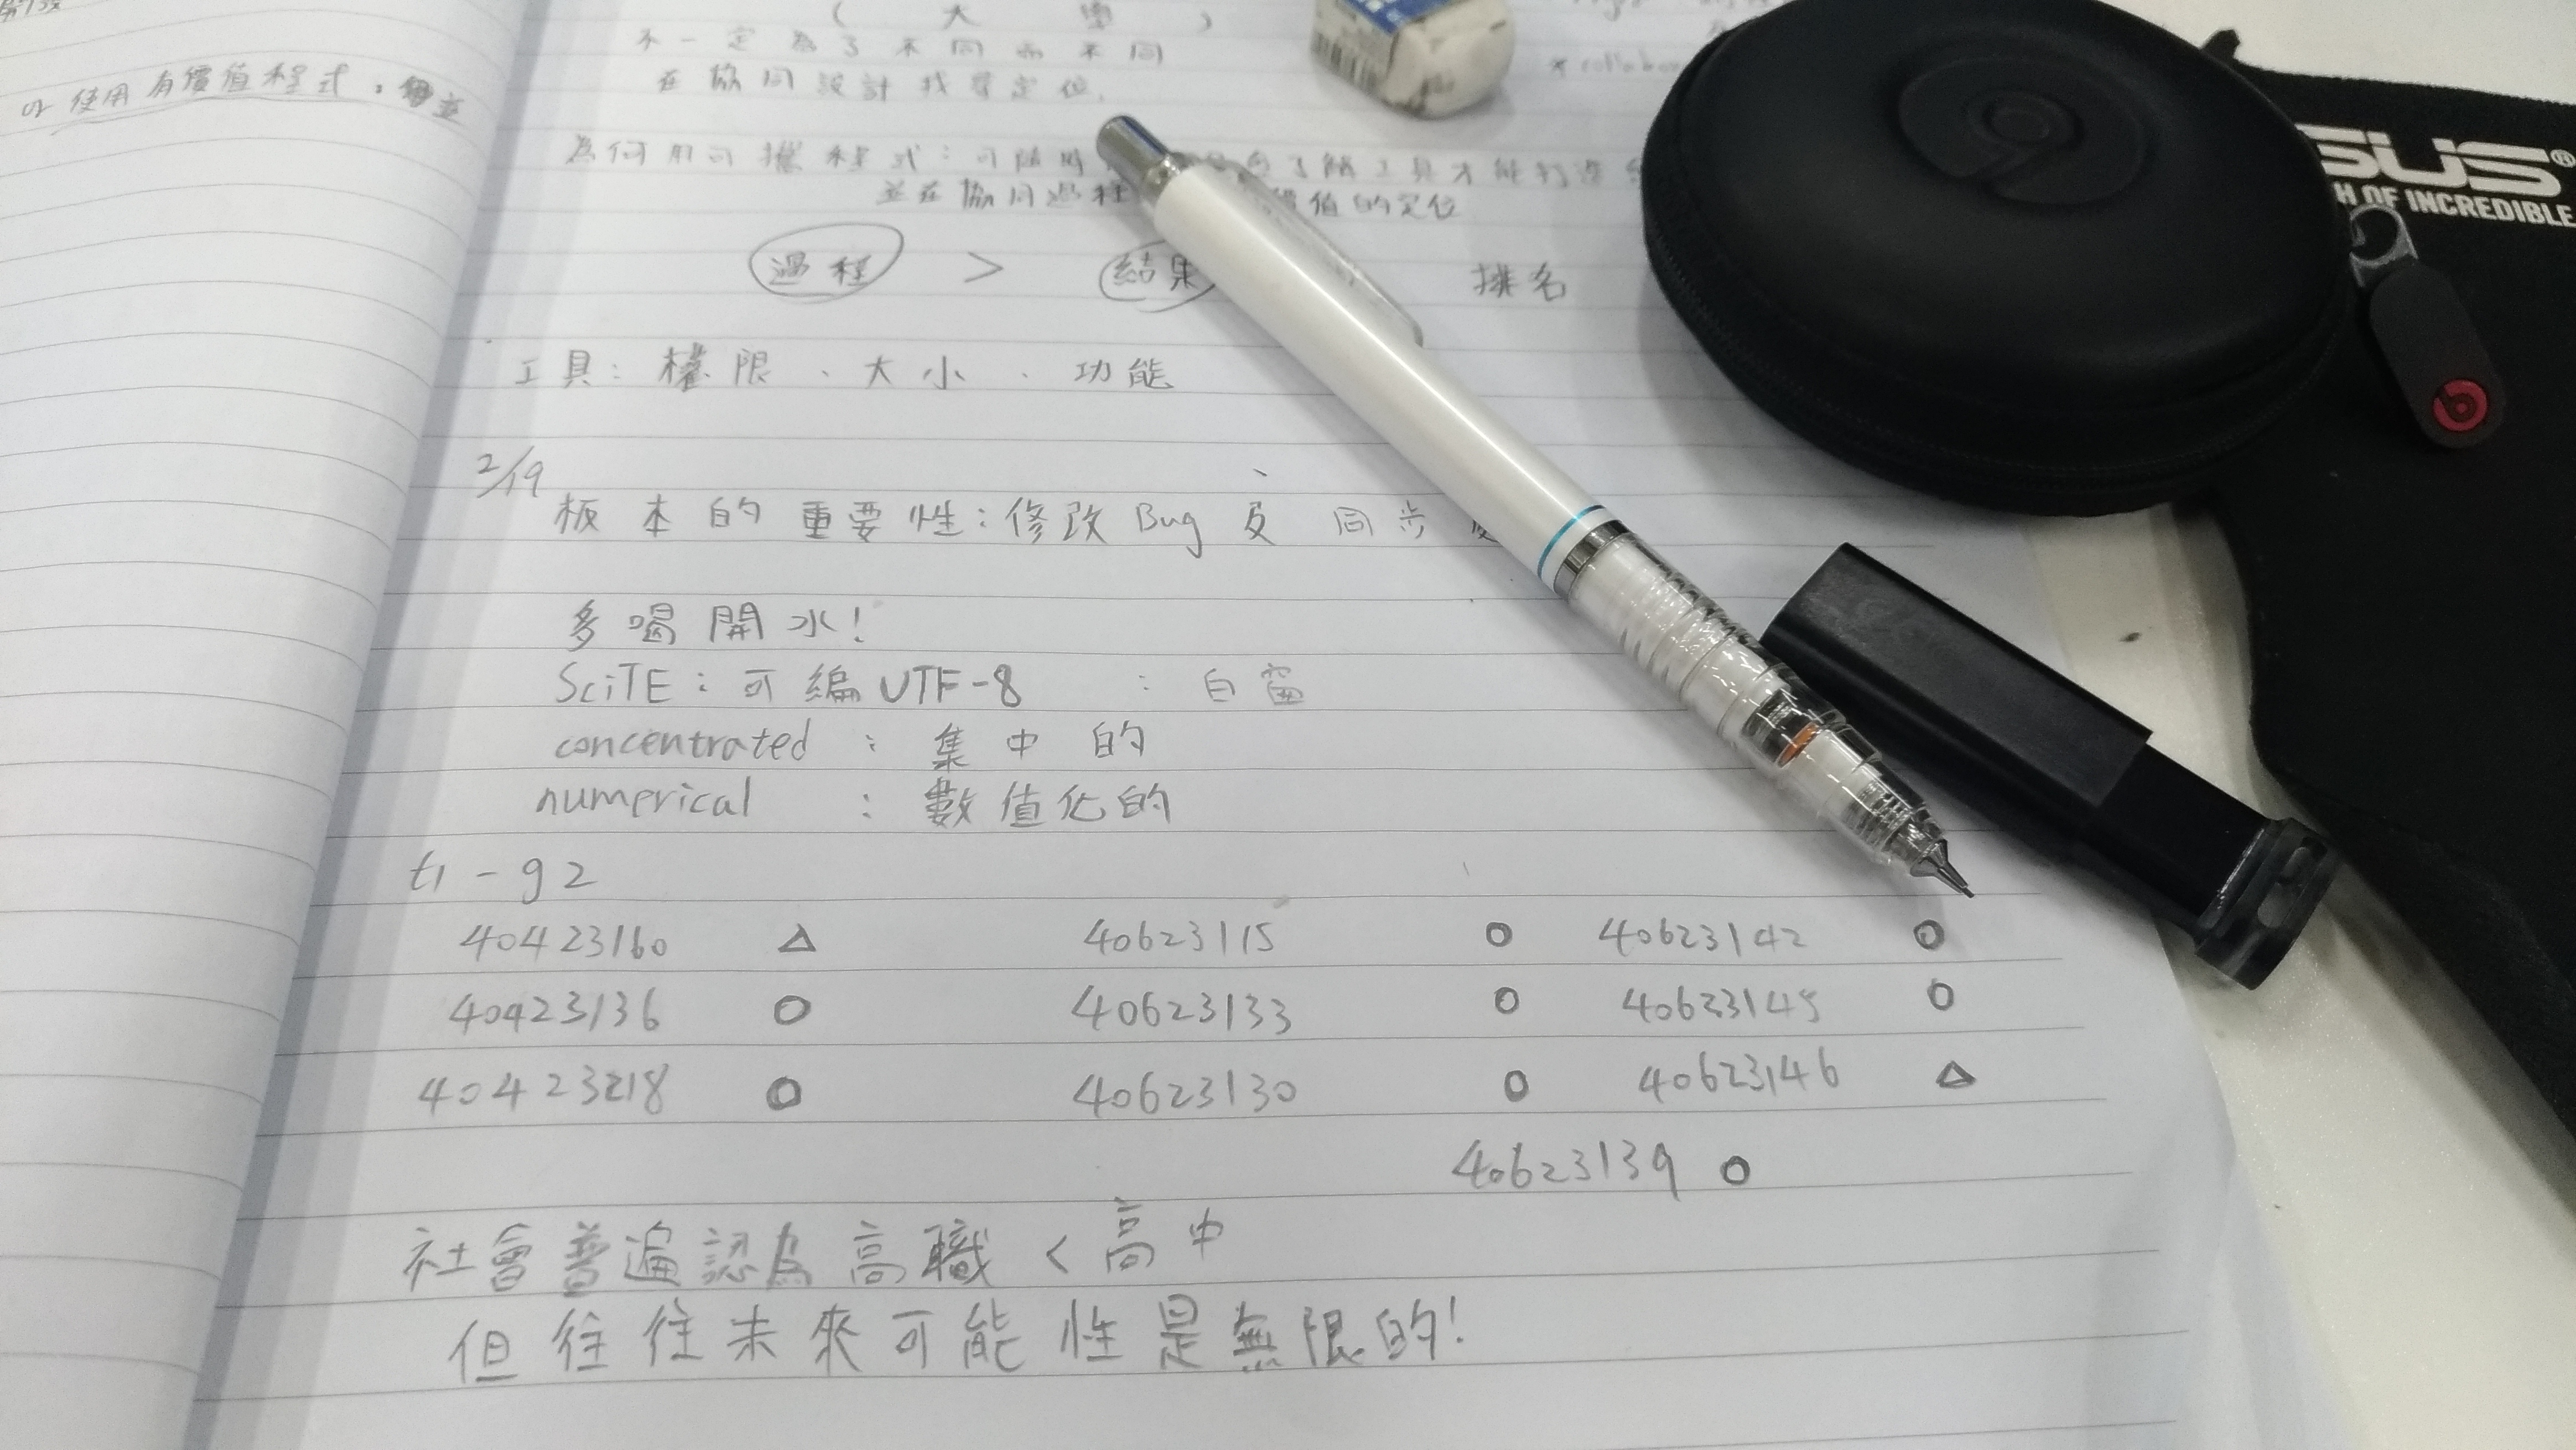 or 使用有價值程式，並
( 大 學 )
不一定為了不同而不同
在協同設計找尋定位.
* collabor
為何用可攜程式：可隨時 了解工具才能打造
並在協同過程 價值的定位
過程 > 結果 排名
工具：權限、大小、功能
2/19
板本的重要性：修改Bug及同步
多喝開水!
SciTE：可編UTF-8 ：白窗
concentrated ：集中的
numerical ：數值化的
t1-g2
40423160 △ 40623115 O 40623142 O
40423136 O 40623133 O 40623145 O
40423218 O 40623130 O 40623146 △
40623139 O
社會普遍認為高職 < 高中
但往往未來可能性是無限的!
SUS®
H OF INCREDIBLE